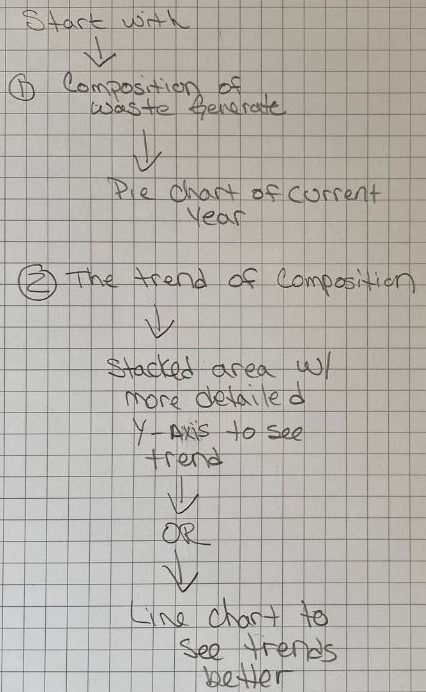 Start with
① Composition of
waste Generate
Pie chart of current
year
② The trend of Composition
Stacked area w/
more detailed
Y-Axis to see
trend
OR
Line chart to
see trends
better